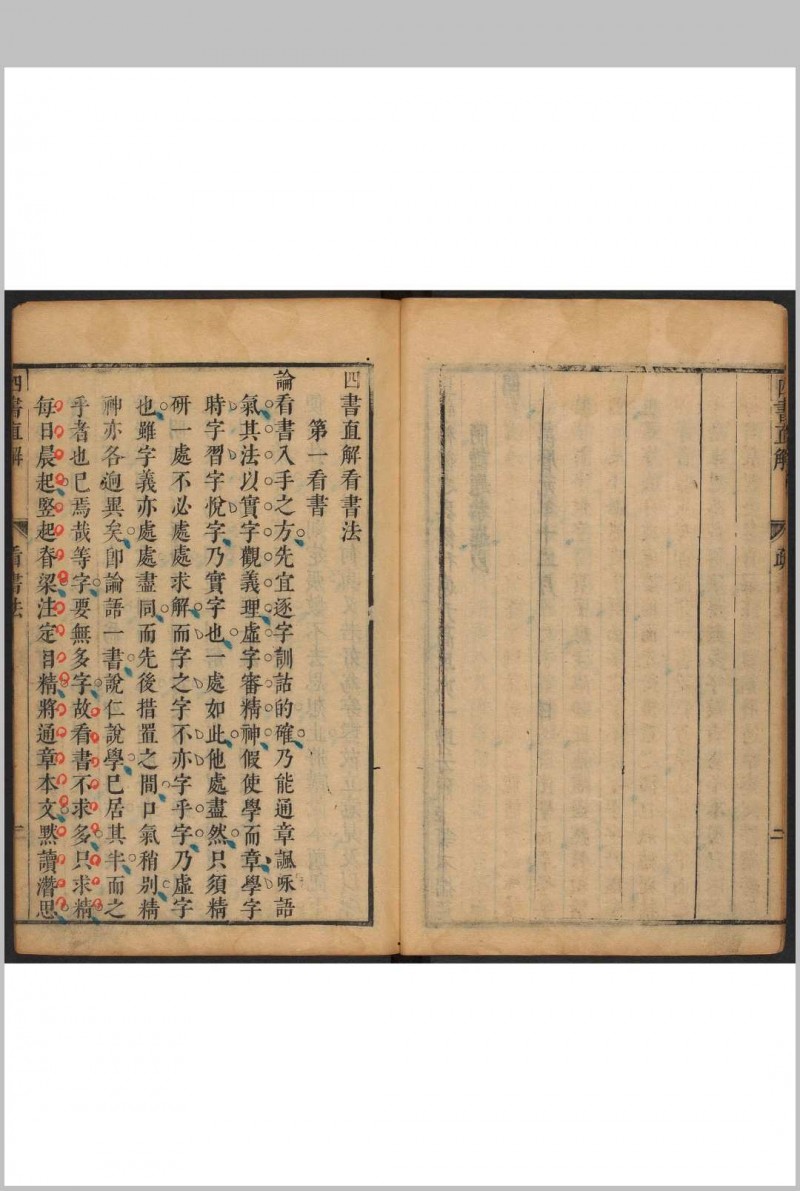 四書直解
疏
二
四書直解看書法
第一看書
論看書入手之方先宜逐字訓詁的確乃能通章諷咏語
氣其法以實字觀義理虛字審精神假使學而章學字
時字習字悅字乃實字也一處如此他處盡然只須精
研一處不必處處求解而字之字不亦字乎字乃虛字
也雖字義亦處處盡同而先後措置之間口氣稍別精
神亦各迥異矣卽論語一書說仁說學巳居其半而之
乎者也巳焉哉等字要無多字故看書不求多只求精
每日晨起竪起脊梁注定目精將通章本文默讀潛思
四書直解
看書法
二